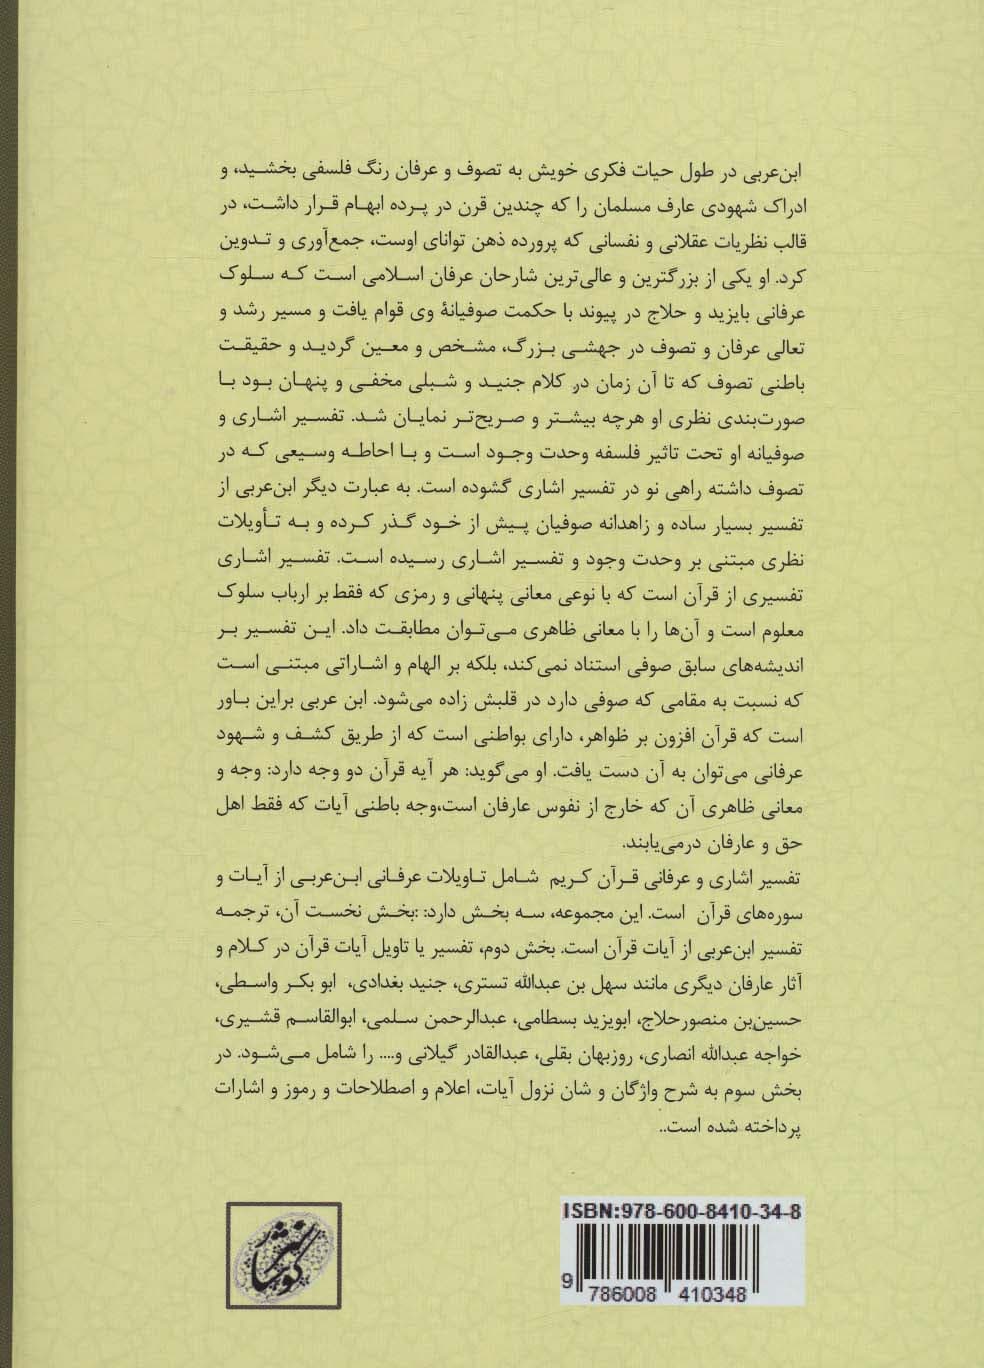 ابن‌عربی در طول حیات فکری خویش به تصوف و عرفان رنگ فلسفی بخشید، و
ادراک شهودی عارف مسلمان را که چندین قرن در پرده ابهام قرار داشت، در
قالب نظریات عقلانی و نفسانی که پرورده ذهن توانای اوست، جمع‌آوری و تدوین
کرد. او یکی از بزرگترین و عالی‌ترین شارحان عرفان اسلامی است که سلوک
عرفانی بایزید و حلاج در پیوند با حکمت صوفیانهٔ وی قوام یافت و مسیر رشد و
تعالی عرفان و تصوف در جهشی بزرگ، مشخص و معین گردید و حقیقت
باطنی تصوف که تا آن زمان در کلام جنید و شبلی مخفی و پنهان بود با
صورت‌بندی نظری او هرچه بیشتر و صریح‌تر نمایان شد. تفسیر اشاری و
صوفیانه او تحت تاثیر فلسفه وحدت وجود است و با احاطه وسیعی که در
تصوف داشته راهی نو در تفسیر اشاری گشوده است. به عبارت دیگر ابن‌عربی از
تفسیر بسیار ساده و زاهدانه صوفیان پیش از خود گذر کرده و به تأویلات
نظری مبتنی بر وحدت وجود و تفسیر اشاری رسیده است. تفسیر اشاری
تفسیری از قرآن است که با نوعی معانی پنهانی و رمزی که فقط بر ارباب سلوک
معلوم است و آن‌ها را با معانی ظاهری می‌توان مطابقت داد. این تفسیر بر
اندیشه‌های سابق صوفی استناد نمی‌کند، بلکه بر الهام و اشاراتی مبتنی است
که نسبت به مقامی که صوفی دارد در قلبش زاده می‌شود. ابن عربی براین باور
است که قرآن افزون بر ظواهر، دارای بواطنی است که از طریق کشف و شهود
عرفانی می‌توان به آن دست یافت. او می‌گوید: هر آیه قرآن دو وجه دارد: وجه و
معانی ظاهری آن که خارج از نفوس عارفان است،وجه باطنی آیات که فقط اهل
حق و عارفان درمی‌یابند.
تفسیر اشاری و عرفانی قرآن کریم شامل تاویلات عرفانی ابن‌عربی از آیات و
سوره‌های قرآن است. این مجموعه، سه بخش دارد: :بخش نخست آن، ترجمه
تفسیر ابن‌عربی از آیات قرآن است. بخش دوم، تفسیر یا تاویل آیات قرآن در کلام و
آثار عارفان دیگری مانند سهل بن عبدالله تستری، جنید بغدادی، ابو بکر واسطی،
حسین‌بن منصورحلاج، ابویزید بسطامی، عبدالرحمن سلمی، ابوالقاسم قشیری،
خواجه عبدالله انصاری، روزبهان بقلی، عبدالقادر گیلانی و.... را شامل می‌شود. در
بخش سوم به شرح واژگان و شان نزول آیات، اعلام و اصطلاحات و رموز و اشارات
پرداخته شده است..
ISBN:978-600-8410-34-8
9 786008 410348
نشر